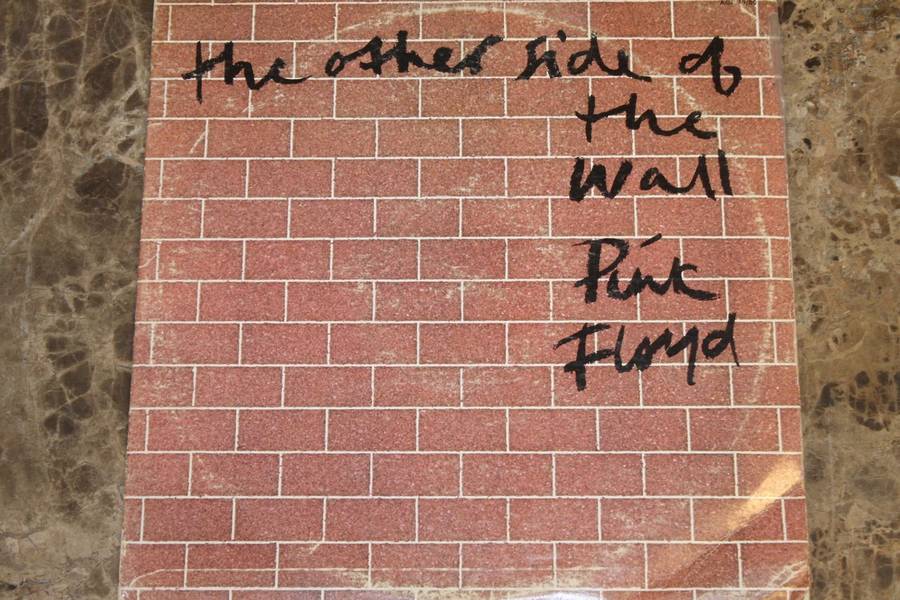 the other side of
the
Wall
Pink
Floyd